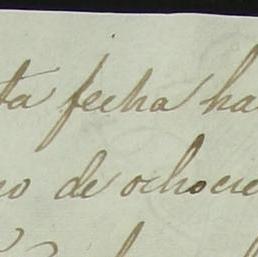 ta fecha ha
o de ochocie